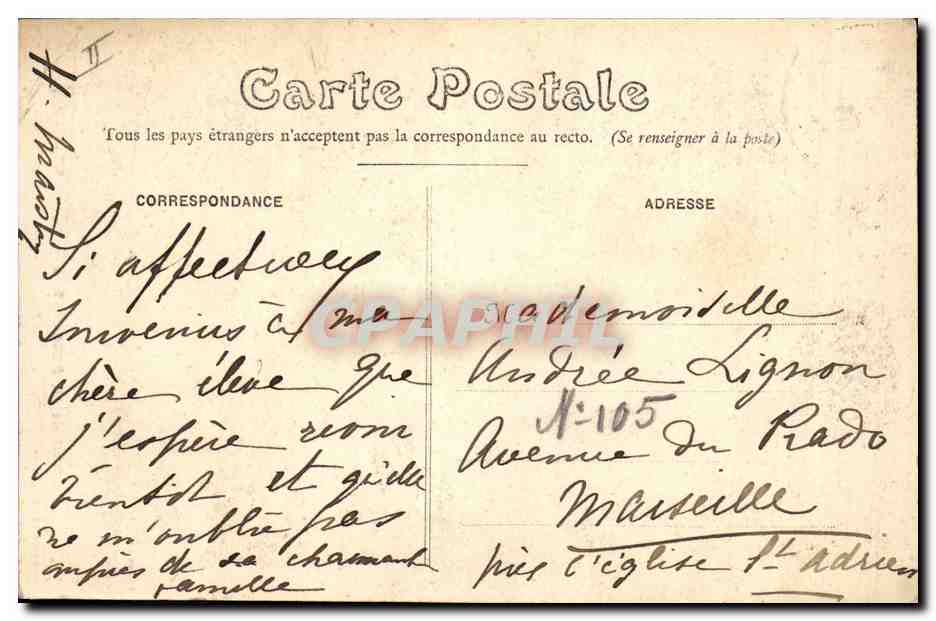 II
Carte Postale
Tous les pays étrangers n'acceptent pas la correspondance au recto. (Se renseigner à la poste)
CORRESPONDANCE
Si affectueux
souvenirs à ma
chère élève que
j'espère revoir
bientôt et qu'elle
ne m'oublie pas
auprès de sa charmant
famille
H.
ADRESSE
Mademoiselle
Andrée Lignon
N. 105
Avenue du Prado
Marseille
près l'église St. Adrien
CPAPHIL